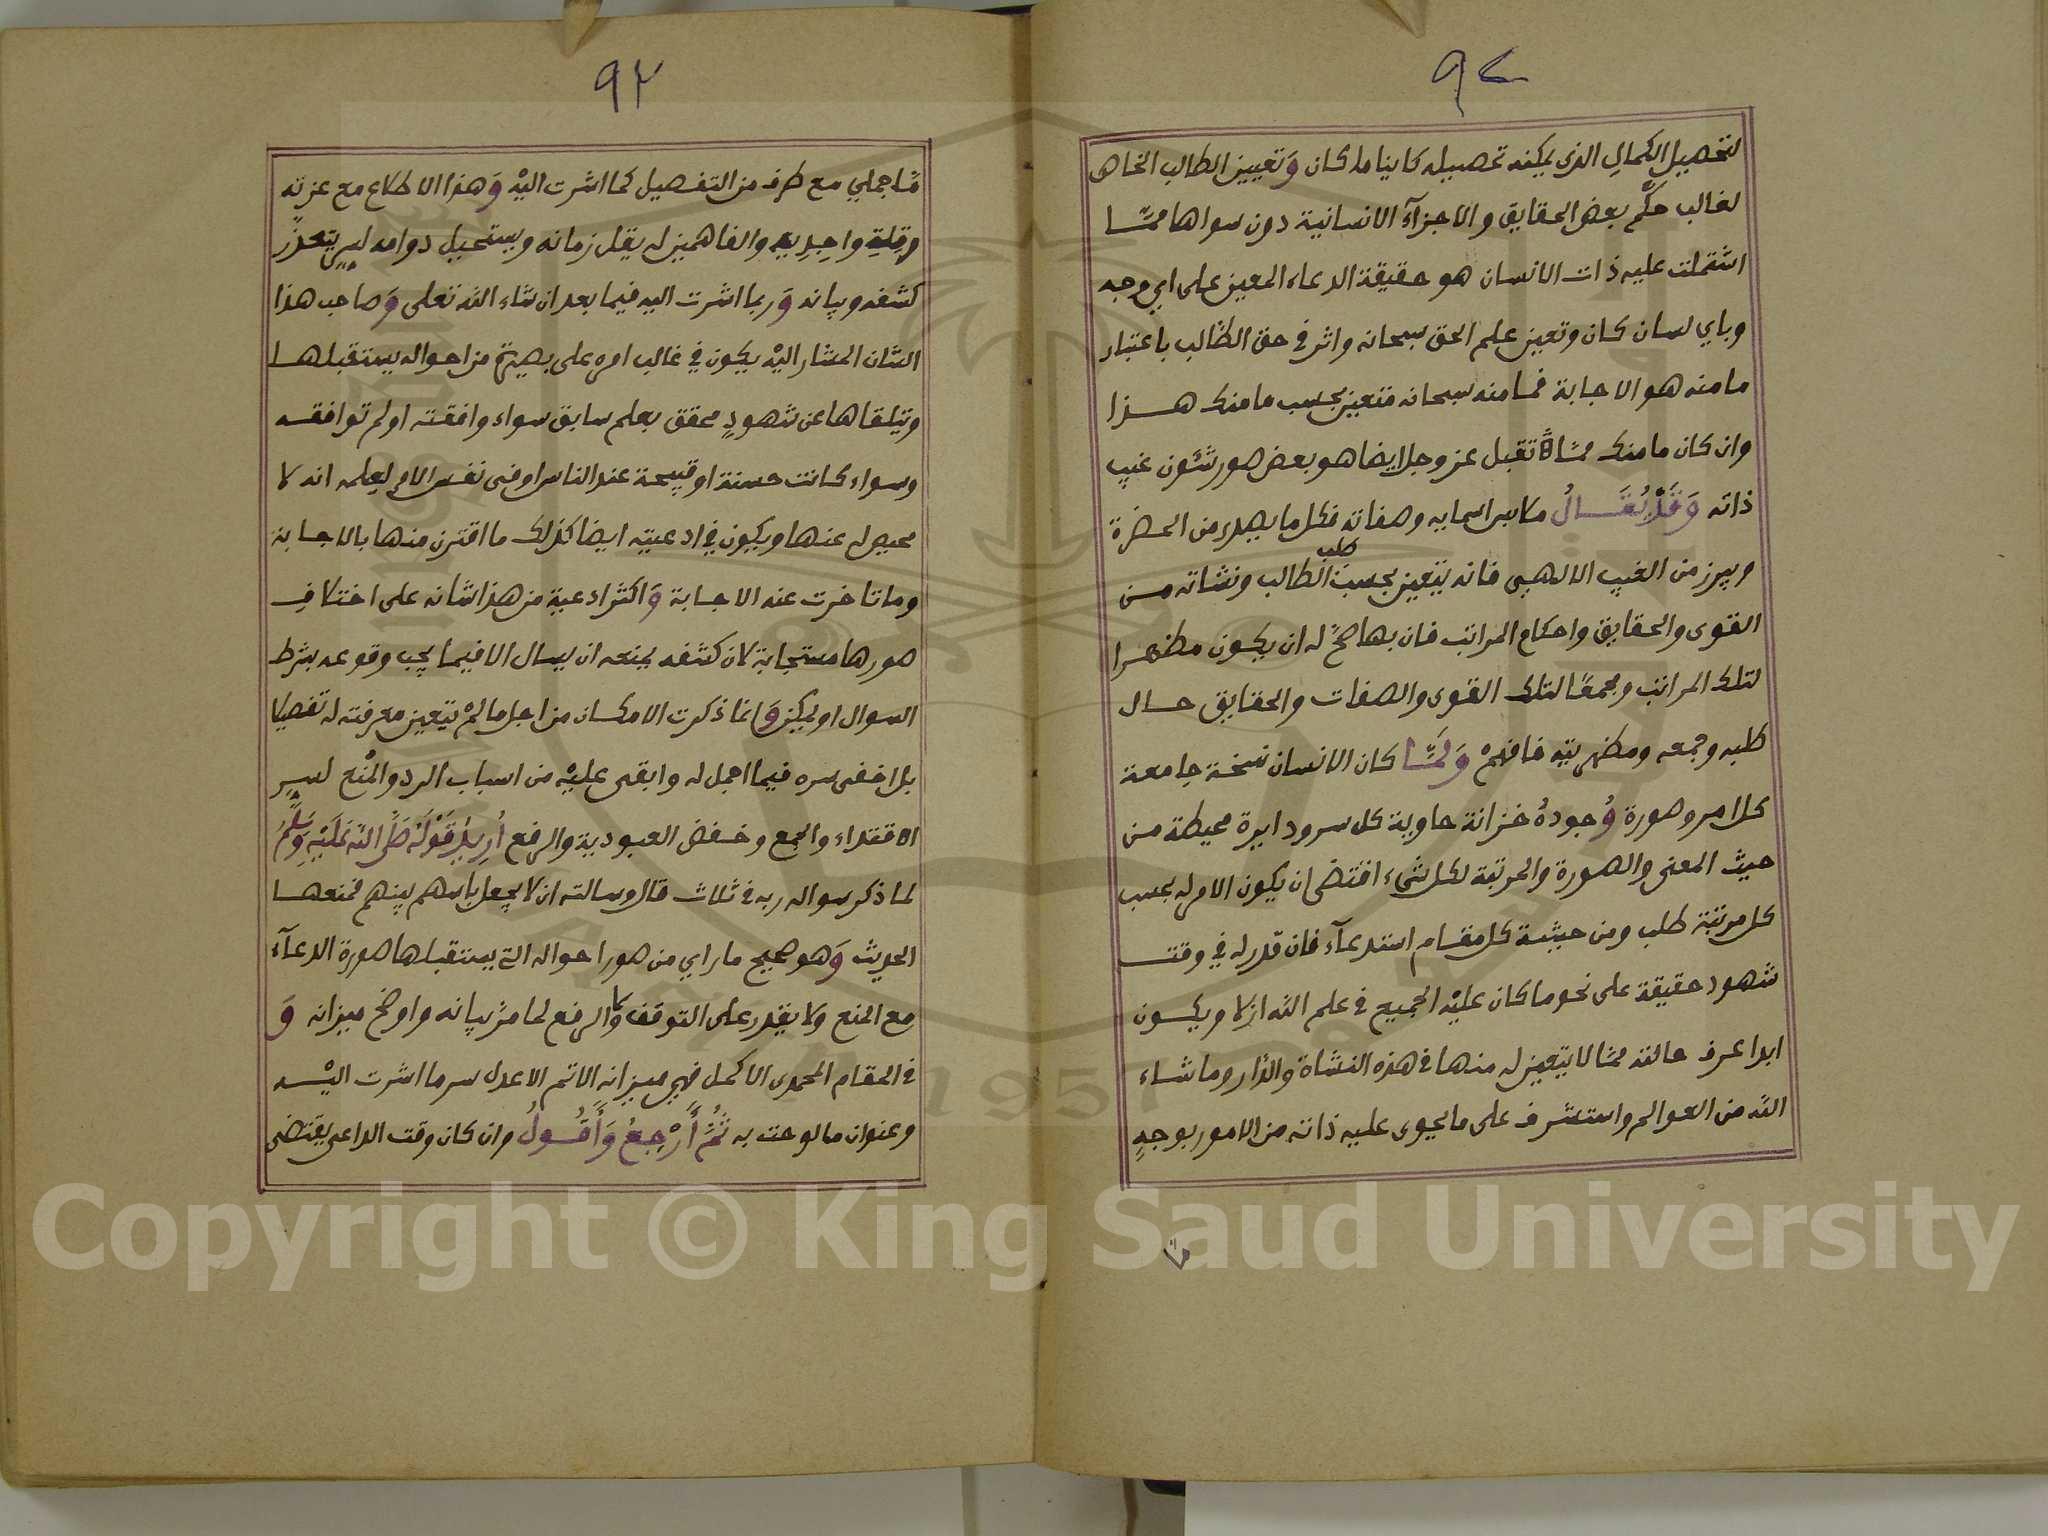 ٩٢
لتحصيل الكمال الذي يمكنه تحصيله كاينا ما كان وَتعيين الطالب الخاص
لغالب حكم بعض الحقايق والاجزآء الانسانية دون سواها ممّا
اشتملت عليه ذات الانسان هو حقيقة الدعاء المعين على اي وجه
وباي لسان كان وتعين علم الحق سبحانه واثر في حق الطالب باعتبار
ما منه هو الاجابة فما منه سبحانه متعين بحسب ما منك هذا
وان كان ما منك تقبل عز وجل ايضا هو بعض صور شئون غيب
ذاته وَقَدْ يُقَالُ ملابس اسمايه وصفاته فكل ما يصدر من الحضرة
ويبرز من الغيب الالهي فانه يتعين بحسب طلب الطالب ونشاته من
القوى والحقايق واحكام المراتب فان بها صح له ان يكون مظهرا
لتلك المراتب ومجمعًا لتلك القوى والصفات والحقايق حال
طلبه وجمعه ومظهريته فافهمْ وَلَمَّا كان الانسان نسخة جامعة
كل امر وصورة وُجودهُ خزانة حاوية كل سر ودايرة محيطة من
حيث المعنى والصورة والمرتبة لكل شيء اقتضى ان يكون الامر له بحسب
كل مرتبة طلب ومن حيثية كل مقام استدعآء فان قدر له في وقت
شهود حقيقة على نحو ما كان عليْه الجميع في علم الله ازلا ويكون
ابدا عرف حالتئذ ممّا لا يتعين له منها في هذه النشاة والدّار وما شاء
الله من العوالم واستشرف على ما يحوى عليه ذاته من الامور بوجهٍ
٩٣
مّا جملي مع طرف من التفصيل كما اشرت اليْه وَهذا الاطلاع مع عزته
وقلةِ واجِديه والفاهمين له يقل زمانه ويستحيل دوامه لسرٍ يتعذّر
كشفه وبيانه وَربما اشرت اليه فيما بعد ان شاء الله تعلى وَصاحب هذا
الشّان المشار اليْه يكون في غالب امره على بصيرة من احواله يستقبلها
ويتلقاها عن شهودٍ محقق بعلم سابق سواء وافقته او لم توافقه
وسواء كانت حسنة او قبيحة عند الناس او في نفس الامر لعلمه انه لا
محيص له عنها ويكون في ادعيته ايضا كذلك ما اقترن منها بالاجابة
وما تاخرت عنه الاجابة وَاكثر ادعية من هذا شانه على اختلافِ
صورها مستجابة لان كشفه يمنعه ان يسال الا فيما يجب وقوعه بشرط
السوال او يمكن وَانما ذكرت الامكان من اجل ما لمْ يتعين معرفته له تفصيلا
بل اخفى سره فيما اجمل له وابقى عليْه من اسباب الرد والمنْع لسرٍ
الاقتداء والجمع وخفض العبودية والرفع اُرِيدُ قَوْلَهُ صَلَّى اللّهُ عَلَيْهِ وَسَلَّمُ
لما ذكر سواله ربه في ثلاث قال وسالته ان لا يجعل باسهم بينهم فمنعها
الحديث وَهو صحيح ما راي من صور احواله التي يستقبلها صورة الدعآء
مع المنع ولا يقدر على التوقف ولا الرفع لما مرّ بيانه واوضح ميزانه وَ
في المقام المحمدى الاكمل فهي ميزانه الاتم الاعدل سر ما اشرت اليْه
وعنوان ما لوحت به ثُمَّ أَرْجِعُ وَأَقُولُ وان كان وقت الداعي يقتضى
Copyright © King Saud University
1957